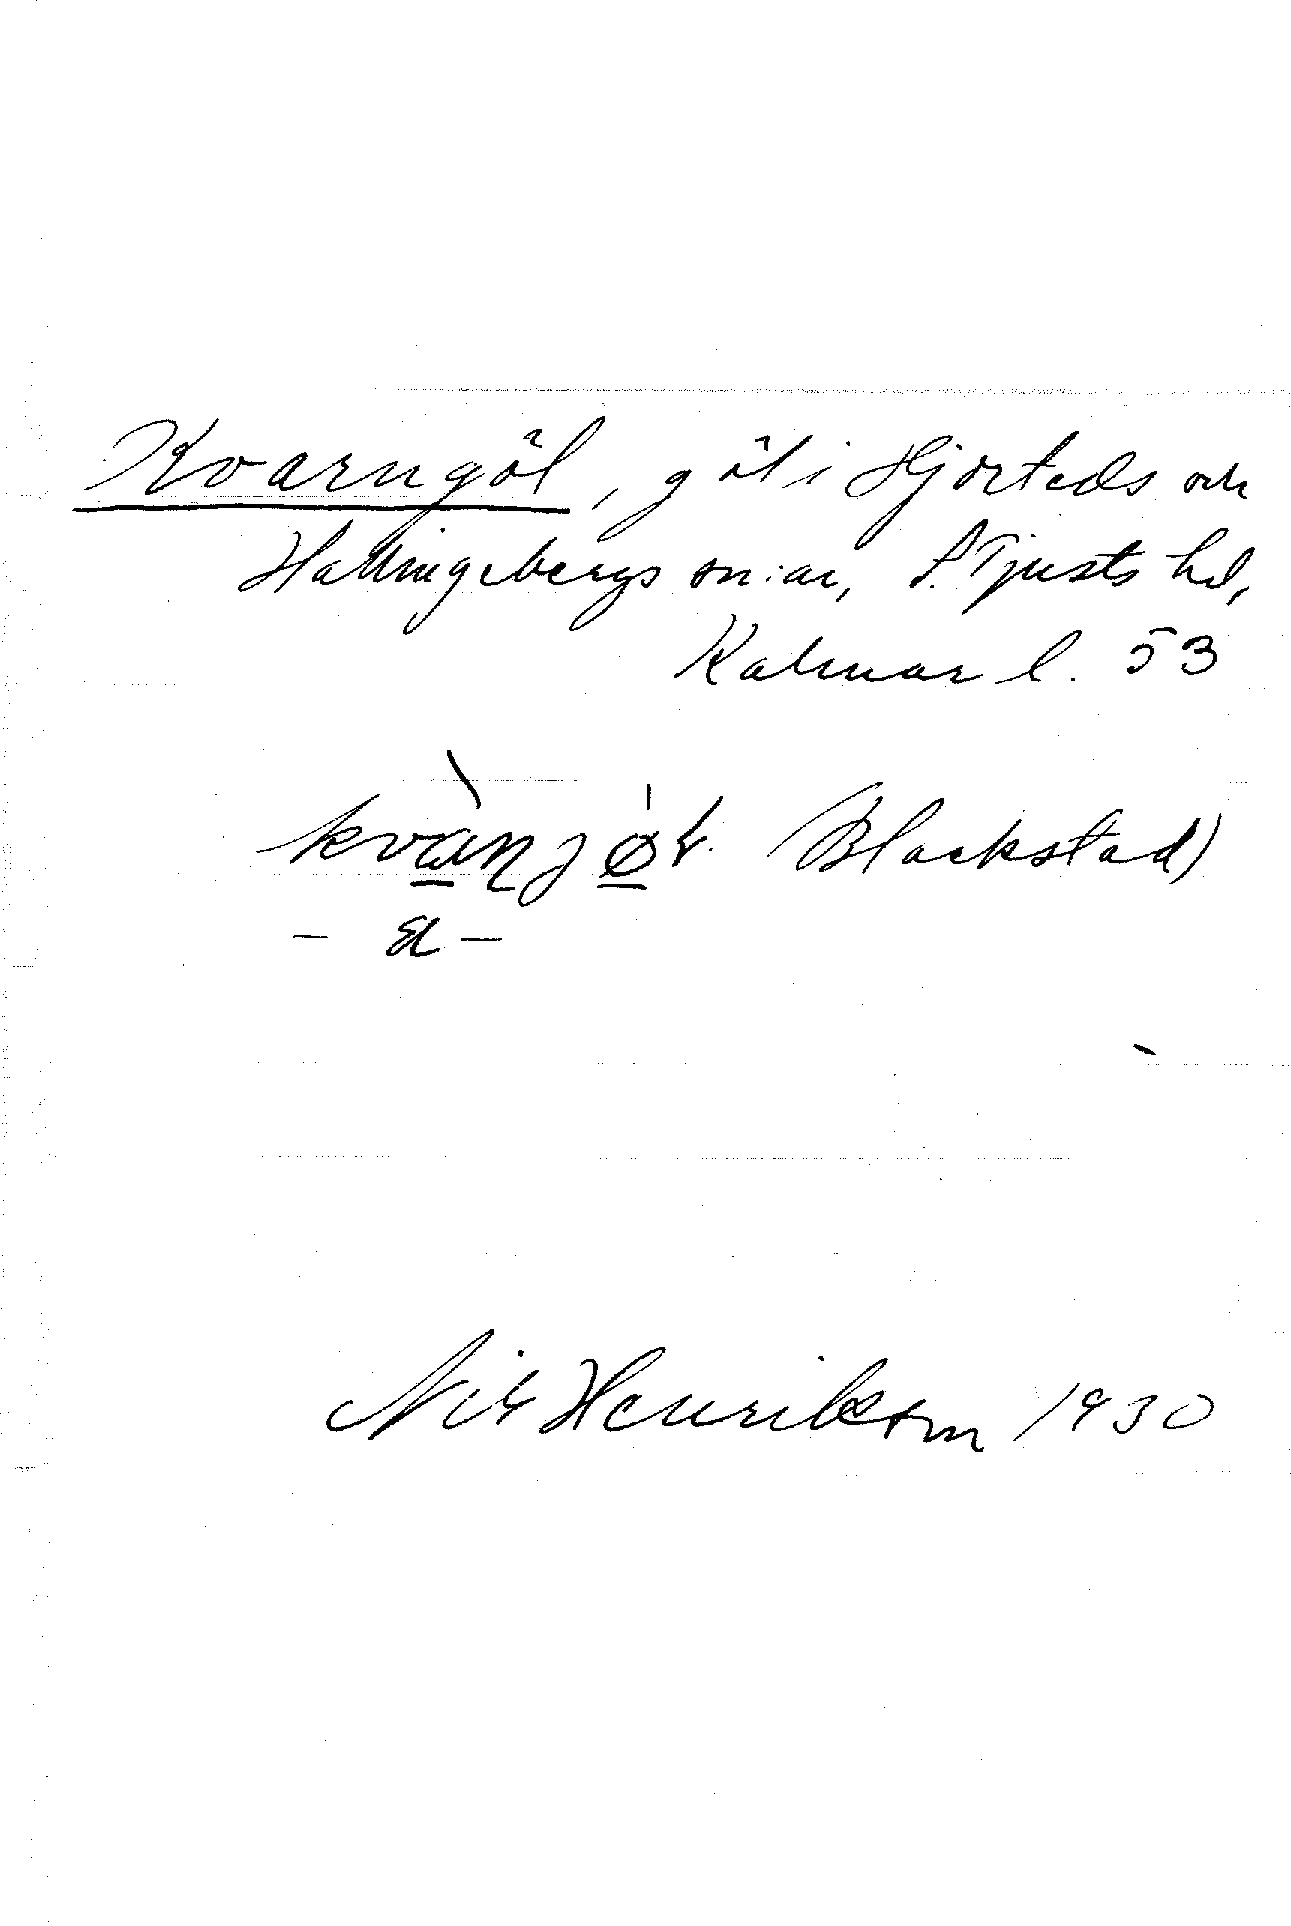 Kvarngöl, göl i Hjorteds och
Hallingebergs sn:ar, S. Tjusts hd,
Kalmar l. 53
(Blackstad)
- a -
Nils Henrikson 1930